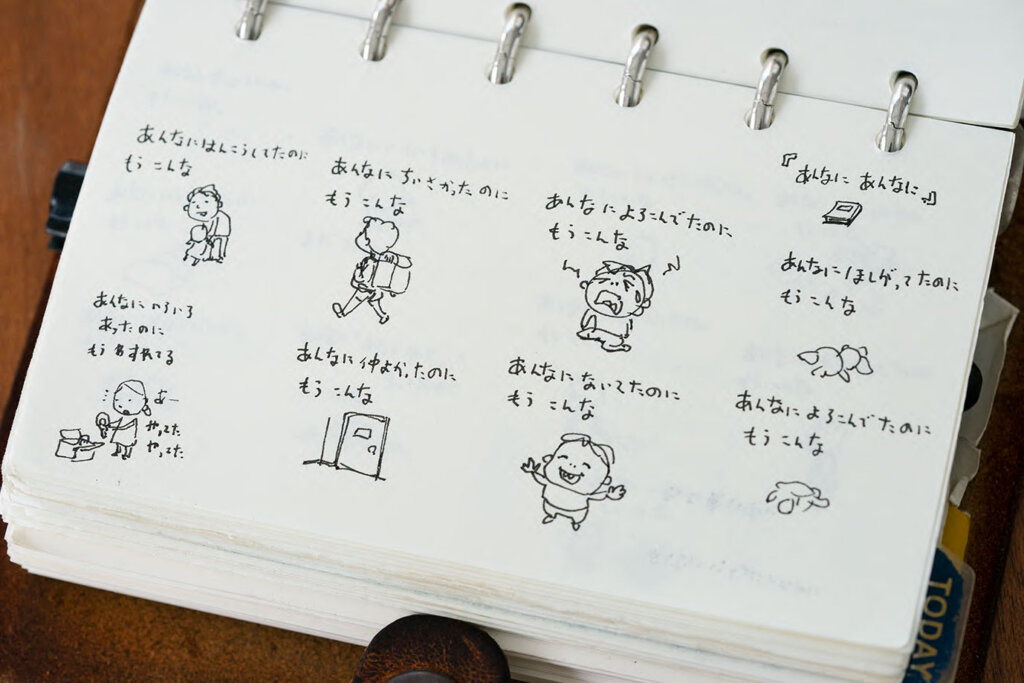 『あんなに あんなに』
あんなに ほしがってたのに
もう こんな
あんなに よろこんでたのに
もう こんな
あんなに よろこんでたのに
もう こんな
あんなに ないてたのに
もう こんな
あんなに ちいさかったのに
もう こんな
あんなに 仲よかったのに
もう こんな
あんなに はんこうしてたのに
もう こんな
あんなに いろいろ
あったのに
もう わすれてる
あー
やってた
やってた
TODAY